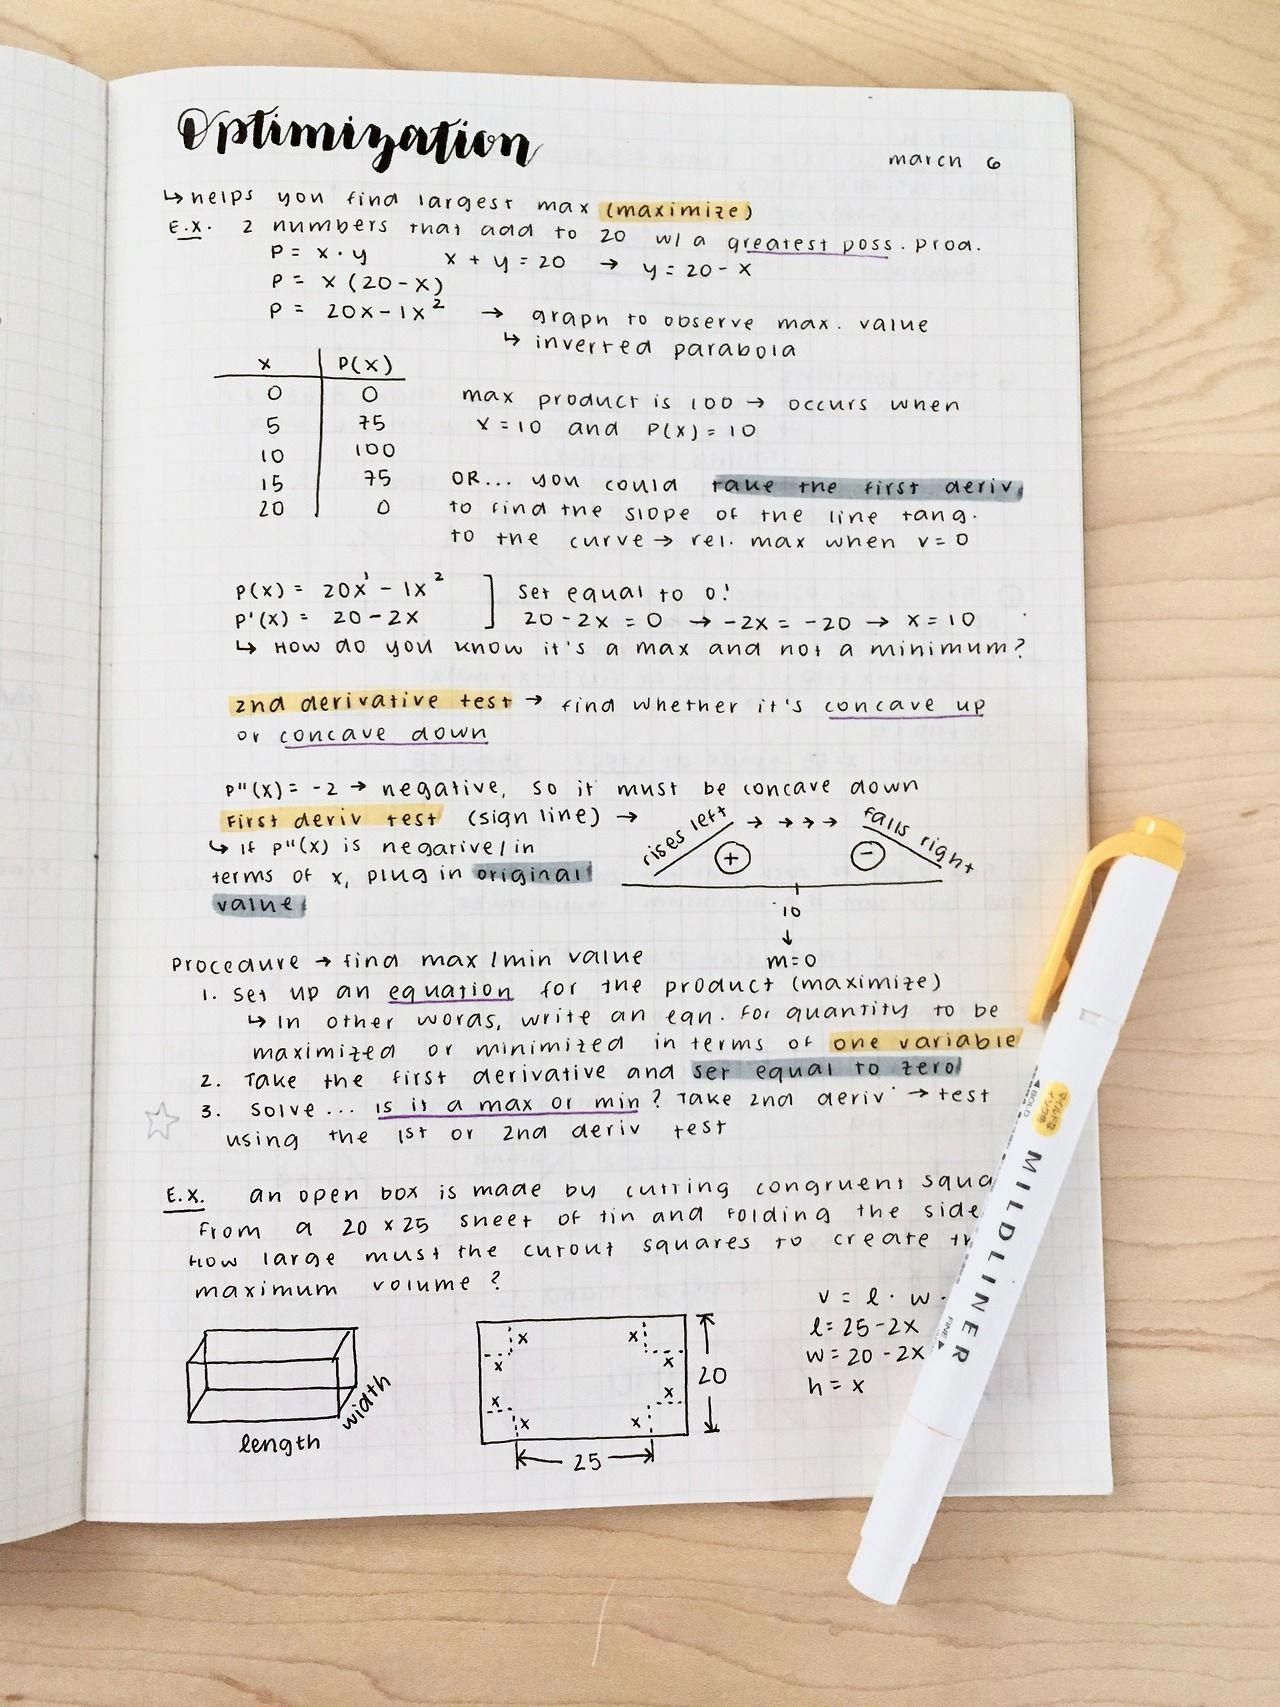 Optimization
march 6
↳ helps you find largest max (maximize)
E.X. 2 numbers that add to 20 w/ a greatest poss. prod.
P = x · y x + y = 20 → y = 20 - x
P = x (20 - x)
P = 20x - 1x² → graph to observe max. value
↳ inverted parabola
x P(x)
0 0
5 75
10 100
15 75
20 0
max product is 100 → occurs when
x = 10 and P(x) = 10
OR... you could take the first deriv.
to find the slope of the line tang.
to the curve → rel. max when v = 0
P(x) = 20x¹ - 1x² ] set equal to 0!
P'(x) = 20 - 2x 20 - 2x = 0 → -2x = -20 → x = 10
↳ How do you know it's a max and not a minimum?
2nd derivative test → find whether it's concave up
or concave down
P"(x) = -2 → negative, so it must be concave down
First deriv test (sign line) →
rises left → → → → falls right
+ -
10
↓
m = 0
↳ If P"(x) is negative/in
terms of x, plug in original
value
Procedure → find max/min value
1. Set up an equation for the product (maximize)
↳ In other words, write an eqn. for quantity to be
maximized or minimized in terms of one variable
2. Take the first derivative and set equal to zero
3. Solve... is it a max or min? Take 2nd deriv → test
using the 1st or 2nd deriv test
E.X. an open box is made by cutting congruent squa
from a 20 x 25 sheet of tin and folding the side
How large must the cutout squares to create th
maximum volume?
length
width
x x
x x
x x
x x
20
25
v = l · w ·
l = 25 - 2x
w = 20 - 2x
h = x
BOLD
MILDLINER
FINE